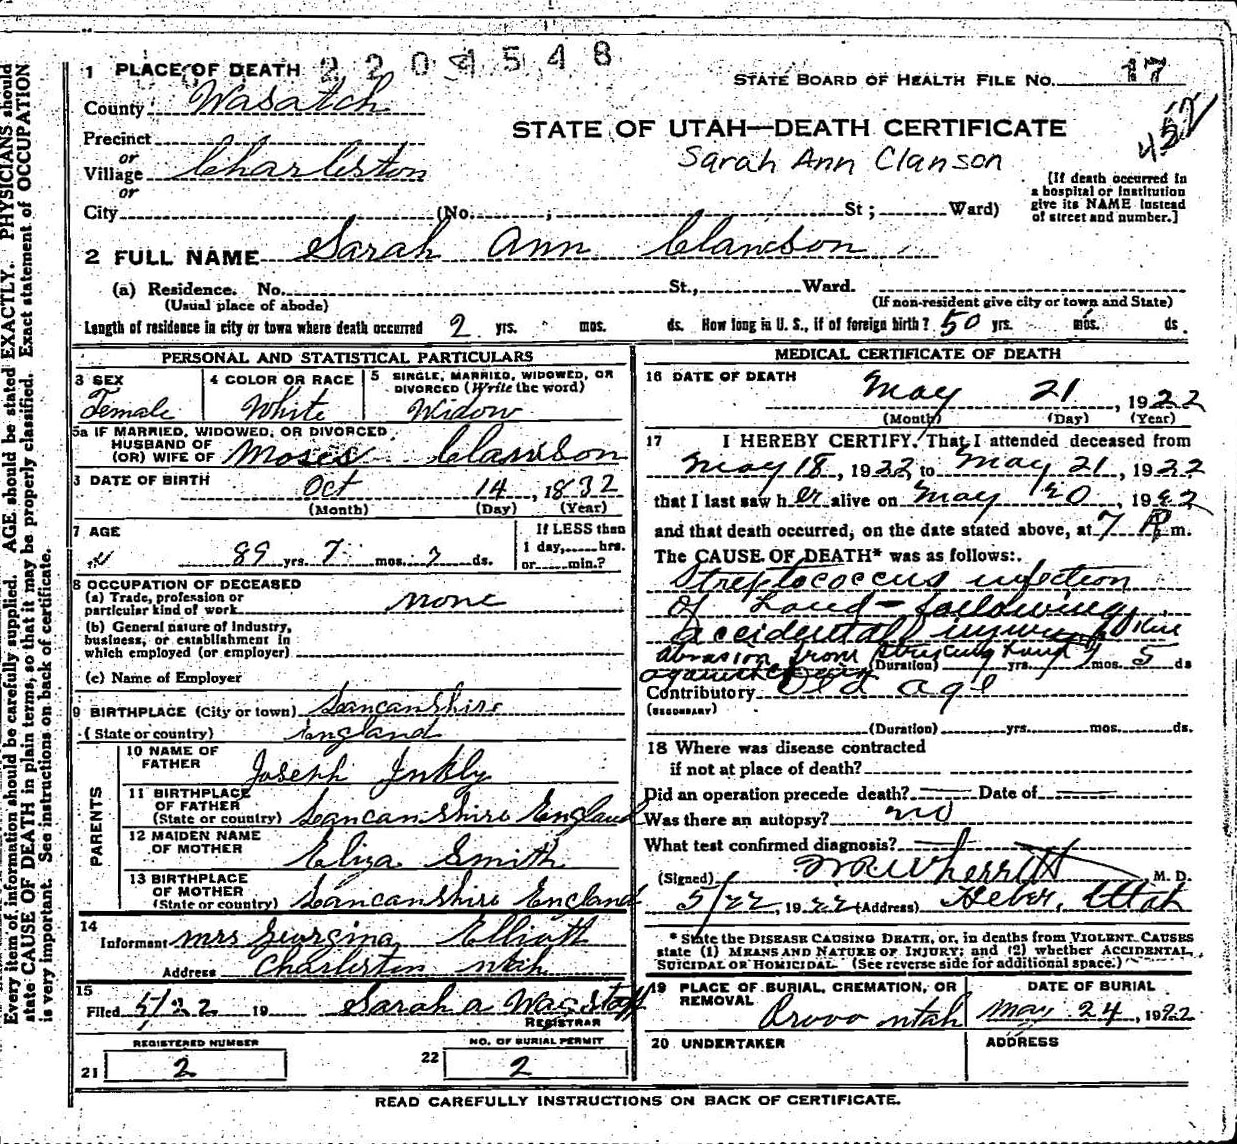 1 PLACE OF DEATH 2204548
STATE BOARD OF HEALTH FILE NO. 17
County Wasatch
422
STATE OF UTAH—DEATH CERTIFICATE
Precinct
or
Village Charleston
Sarah Ann Clanson
or
(If death occurred in
a hospital or institution
give its NAME instead
of street and number.]
City (No. , St ; Ward)
2 FULL NAME Sarah Ann Clawson
(a) Residence. No. St., Ward.
(Usual place of abode)
(If non-resident give city or town and State)
Length of residence in city or town where death occurred 2 yrs. mos. ds. How long in U. S., if of foreign birth? 50 yrs. mos. ds.
PERSONAL AND STATISTICAL PARTICULARS
3 SEX
Female
4 COLOR OR RACE
White
5 SINGLE, MARRIED, WIDOWED, OR
DIVORCED (Write the word)
Widow
5a IF MARRIED, WIDOWED, OR DIVORCED
HUSBAND OF
(OR) WIFE OF Moses Clawson
3 DATE OF BIRTH Oct 14, 1832
(Month) (Day) (Year)
7 AGE
89 yrs. 7 mos. 7 ds.
If LESS than
1 day, hrs.
or min.?
8 OCCUPATION OF DECEASED
(a) Trade, profession or
particular kind of work none
(b) General nature of industry,
business, or establishment in
which employed (or employer)
(c) Name of Employer
9 BIRTHPLACE (City or town) Lancanshire
(State or country) England
PARENTS
10 NAME OF
FATHER Joseph Inkly
11 BIRTHPLACE
OF FATHER
(State or country) Lancanshire England
12 MAIDEN NAME
OF MOTHER Eliza Smith
13 BIRTHPLACE
OF MOTHER
(State or country) Lancanshire England
14
Informant Mrs Georgina Elliott
Address Charleston utah
15
Filed 5/22 19 Sarah A Wagstaff
REGISTRAR
REGISTERED NUMBER
21 2
NO. OF BURIAL PERMIT
22 2
MEDICAL CERTIFICATE OF DEATH
16 DATE OF DEATH
May 21, 1922
(Month) (Day) (Year)
17 I HEREBY CERTIFY, That I attended deceased from
May 18, 1922, to May 21, 1922
that I last saw her alive on May 20, 1922
and that death occurred, on the date stated above, at 7 P. m.
The CAUSE OF DEATH* was as follows:
Streptococcus infection
of hand - following
accidental injury
abrasion from striking hand
against
(Duration) yrs. mos. 5 ds
Contributory Old age
(SECONDARY)
(Duration) yrs. mos. ds.
18 Where was disease contracted
if not at place of death?
Did an operation precede death? Date of
Was there an autopsy? no
What test confirmed diagnosis?
(Signed) Wherritt, M. D.
5/22, 1922 (Address) Heber, Utah
* State the DISEASE CAUSING DEATH, or, in deaths from VIOLENT CAUSES
state (1) MEANS AND NATURE OF INJURY; and (2) whether ACCIDENTAL,
SUICIDAL OR HOMICIDAL. (See reverse side for additional space.)
19 PLACE OF BURIAL, CREMATION, OR
REMOVAL
Provo utah
DATE OF BURIAL
May 24, 1922
20 UNDERTAKER
ADDRESS
READ CAREFULLY INSTRUCTIONS ON BACK OF CERTIFICATE.
Every item of information should be carefully supplied. AGE should be stated EXACTLY. PHYSICIANS should
state CAUSE OF DEATH in plain terms, so that it may be properly classified. Exact statement of OCCUPATION
is very important. See instructions on back of certificate.